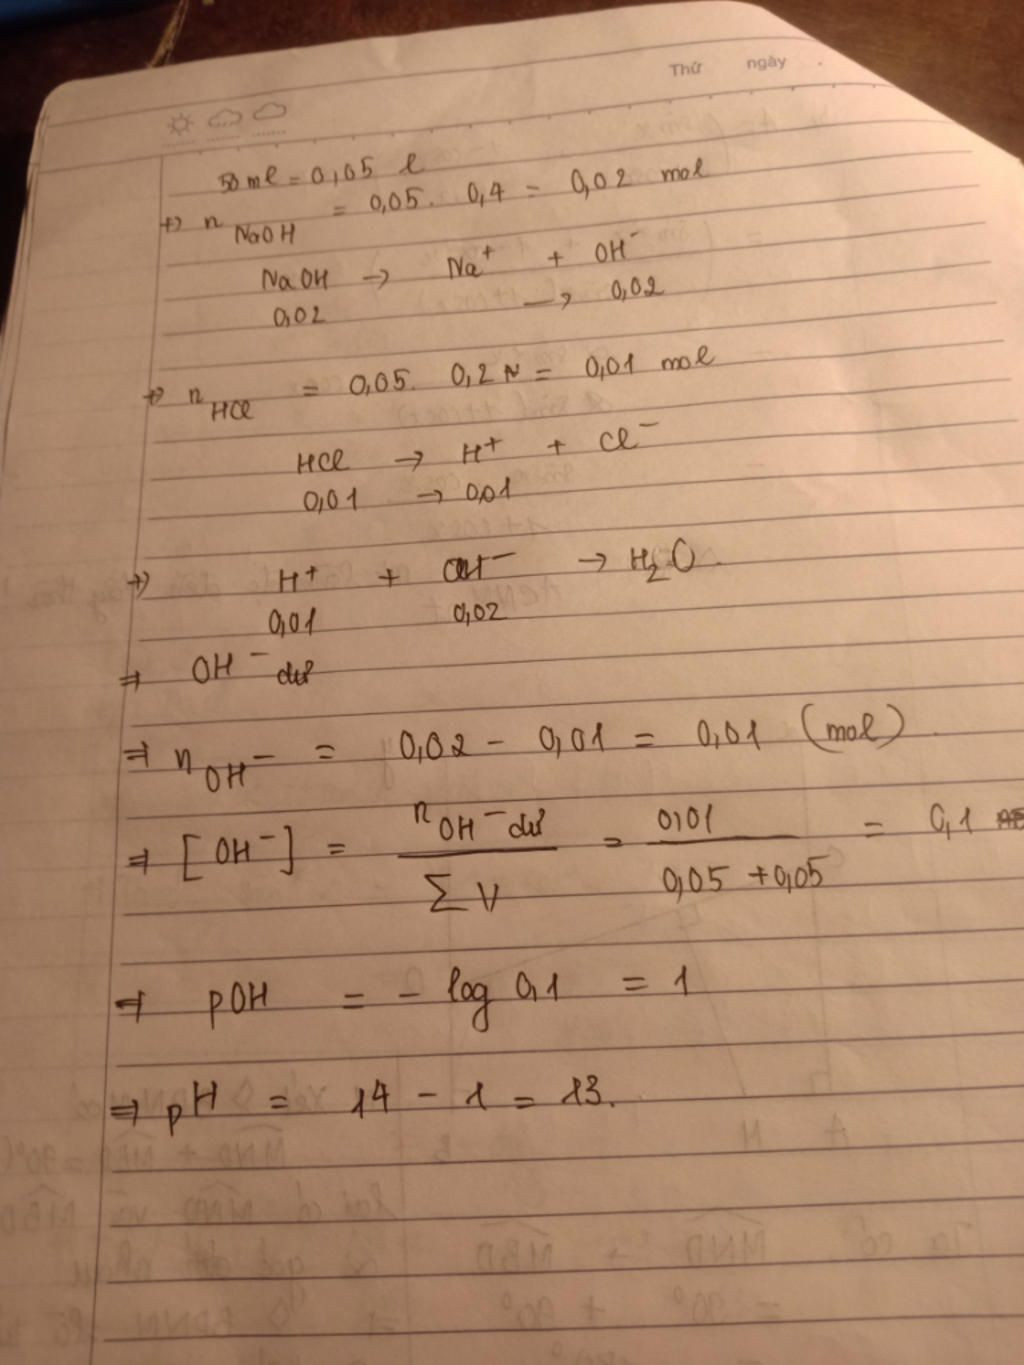 Thứ ngày
50 ml = 0,05 l
=> n NaOH = 0,05. 0,4 = 0,02 mol
NaOH → Na⁺ + OH⁻
0,02 → 0,02
=> n HCl = 0,05. 0,2 N = 0,01 mol
HCl → H⁺ + Cl⁻
0,01 → 0,01
=> H⁺ + OH⁻ → H₂O.
0,01 0,02
=> OH⁻ dư
=> n OH⁻ = 0,02 - 0,01 = 0,01 (mol)
=> [OH⁻] = n OH⁻ dư / Σ V = 0,01 / 0,05 + 0,05 = 0,1
=> pOH = - log 0,1 = 1
=> pH = 14 - 1 = 13.